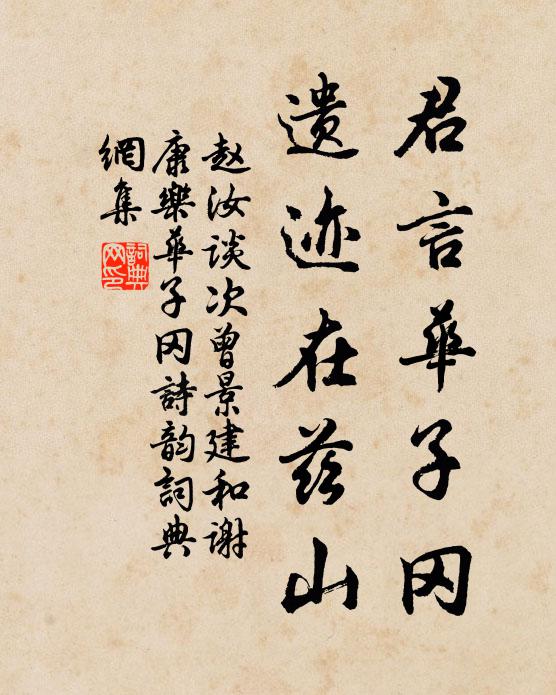 君言華子冈
遗迹在兹山
赵汝谈次曾景建和谢
康樂華子冈詩韵詞典
網集
詞典网印